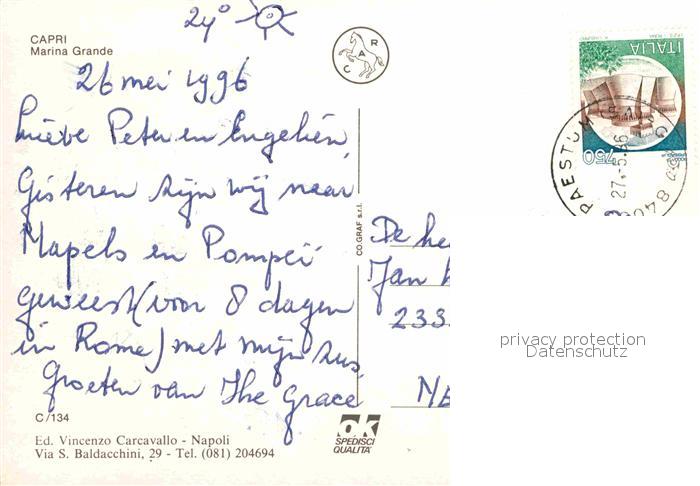 24°
CAPRI
Marina Grande
CAR
26 mei 1996
Lieve Peter en Engelien,
Gisteren zijn wij naar
Napels en Pompeï
geweest (voor 8 dagen
in Rome) met mijn zus
Groeten van The Grace
C/134
Ed. Vincenzo Carcavallo - Napoli
Via S. Baldacchini, 29 - Tel. (081) 204694
CO.GRAF s.r.l.
ok
SPEDISCI
QUALITA'
ITALIA
750
PAESTUM
27.5.96
De he
Jan
233
NE
privacy protection
Datenschutz